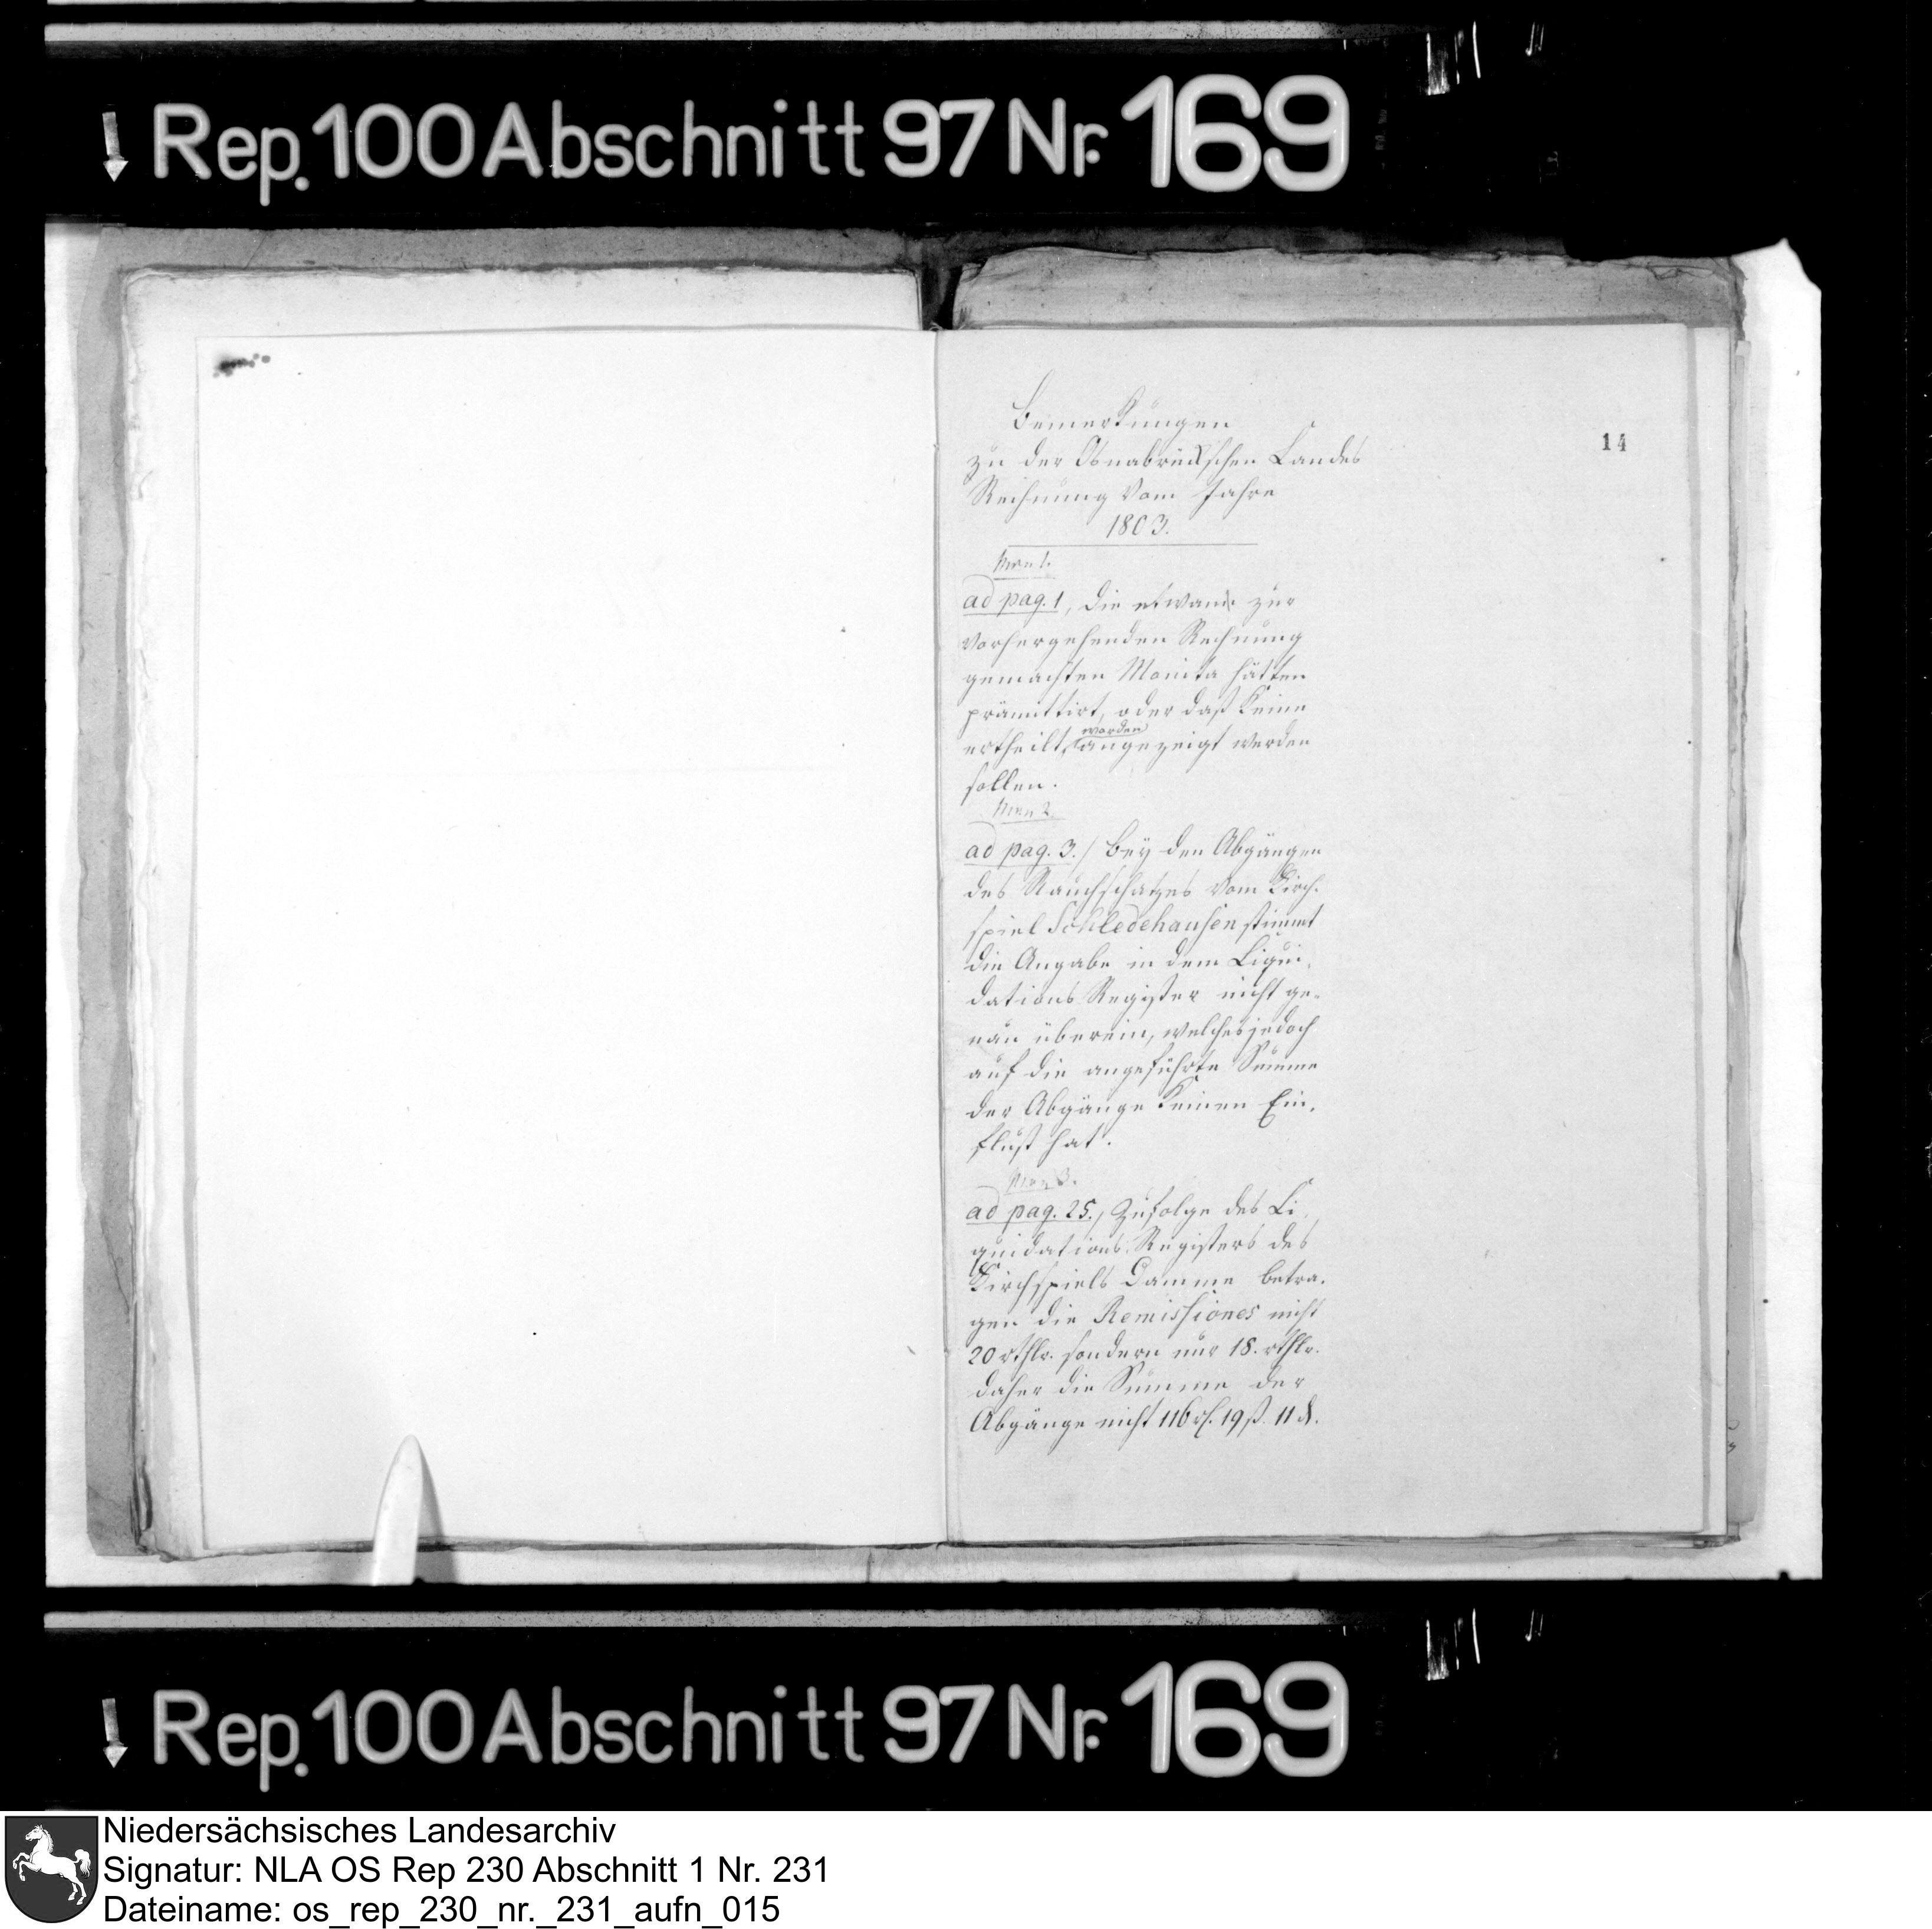 Rep. 100 Abschnitt 97 Nr. 169
Bemerkungen
14
zu der Osnabrückschen Landes
Rechnung vom Jahre
1803.
Mon 1.
ad pag. 1, Die etwani zur
vorhergehenden Rechnung
gemachten Monita hätten
prämittirt, oder daß keine
worden
ertheilt, angezeigt werden
sollen.
Mon 2.
ad pag. 3./ Bey den Abgängen
des Rauchschatzes vom Kirch-
spiel Schledehausen stimmt
die Angabe in dem Liqui-
dations Register nicht ge-
nau überein, welches jedoch
auf die angeführte Summe
der Abgänge keinen Ein-
fluß hat.
Mon 3.
ad pag. 25., Zufolge des Li-
quidations Registers des
Kirchspiels Damme betra-
gen die Remissiones nicht
20 rthlr. sondern nur 18. rthlr.
daher die Summe der
Abgänge nicht 116 rl. 19 ß. 11 d.
Rep. 100 Abschnitt 97 Nr. 169
Niedersächsisches Landesarchiv
Signatur: NLA OS Rep 230 Abschnitt 1 Nr. 231
Dateiname: os_rep_230_nr._231_aufn_015